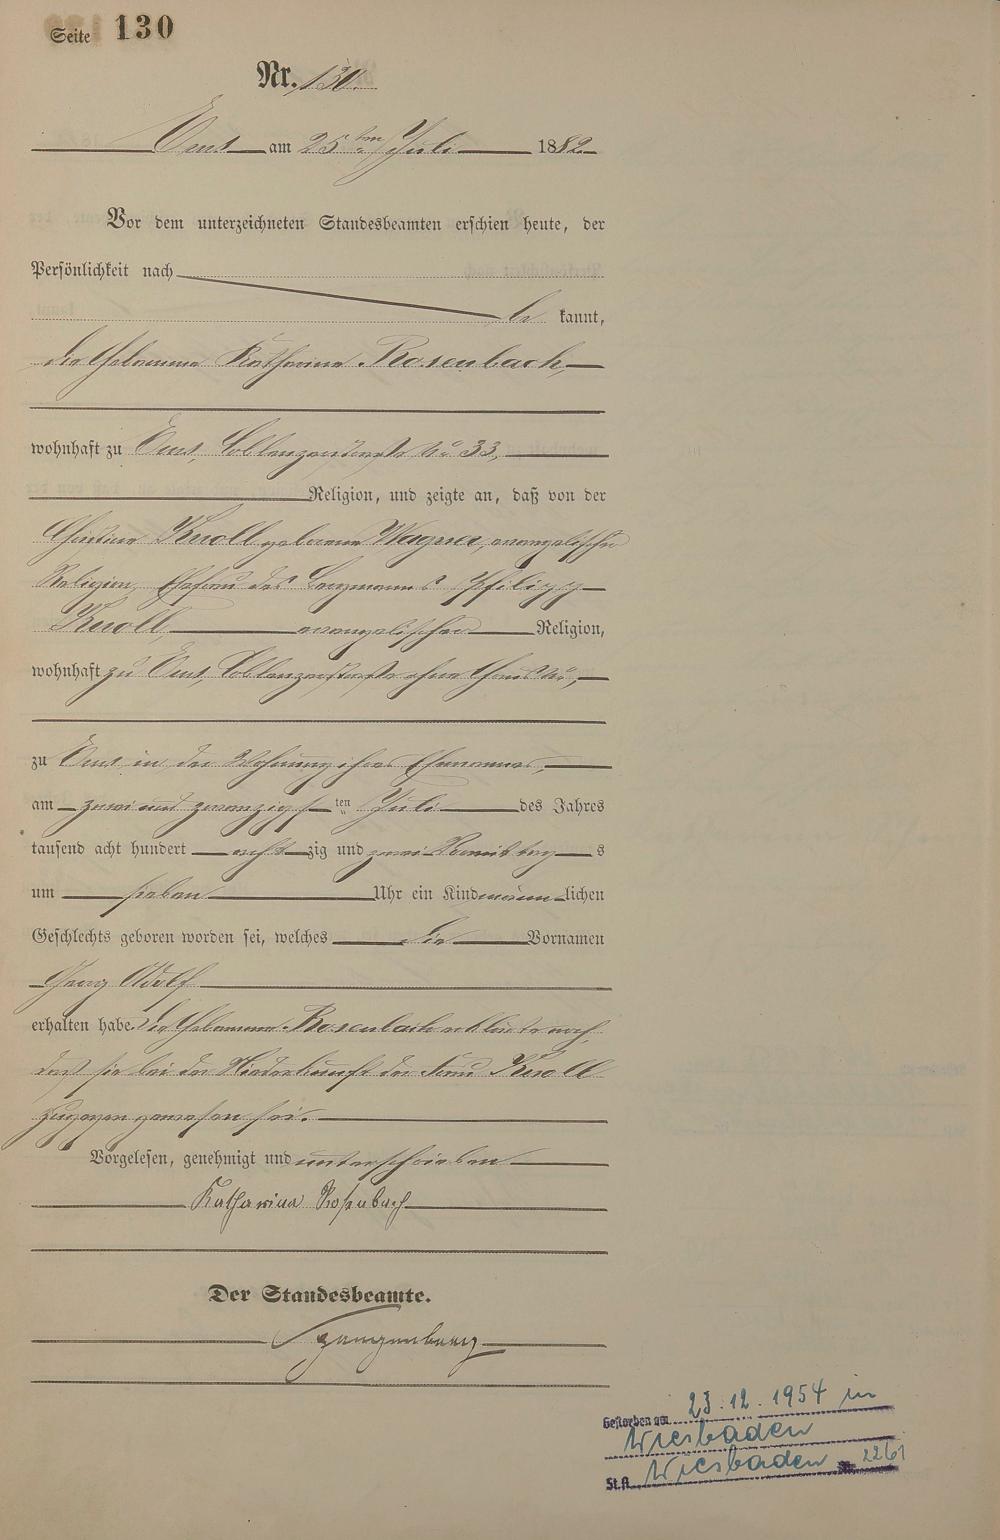 Seite 130
Nr. 130.
Ems am 25ten Juli 1882
Vor dem unterzeichneten Standesbeamten erschien heute, der
Persönlichkeit nach
be kannt,
die Hebamme Katharina Rosenbach,
wohnhaft zu Ems, Coblenzerstraße No 33,
Religion, und zeigte an, daß von der
Christine Knoll geborene Wagner, evangelischer
Religion, Ehefrau des Bergmanns Philipp
Knoll, evangelischer Religion,
wohnhaft zu Ems, Coblenzerstraße ohne Haus No,
zu Ems in der Wohnung ihres Ehemannes,
am zwei und zwanzigsten Juli des Jahres
tausend acht hundert acht zig und zwei Vormittag s
um sieben Uhr ein Kind männ lichen
Geschlechts geboren worden sei, welches die Vornamen
Georg Adolf
erhalten habe. Die Hebamme Rosenbach erklärte noch,
daß sie bei der Niederkunft der Frau Knoll
zugegen gewesen sei.
Vorgelesen, genehmigt und unterschrieben
Katharina Rosenbach
Der Standesbeamte.
Spangenberg
Gestorben am 23.12.1954 in
Wiesbaden
St.A. Wiesbaden Nr. 2261